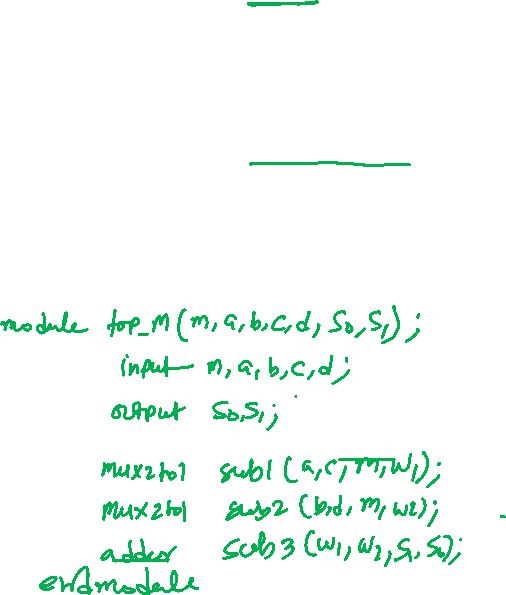 module top_M (m, a, b, c, d, S0, S1);
input m, a, b, c, d;
output S0, S1;
mux2to1 sub1 (a, c, m, w1);
mux2to1 sub2 (b, d, m, w2);
adder sub3 (w1, w2, S1, S0);
endmodule